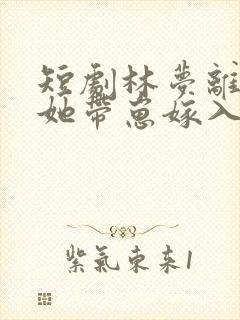 短劇林夢離
她帶崽嫁入
紫氣東來1